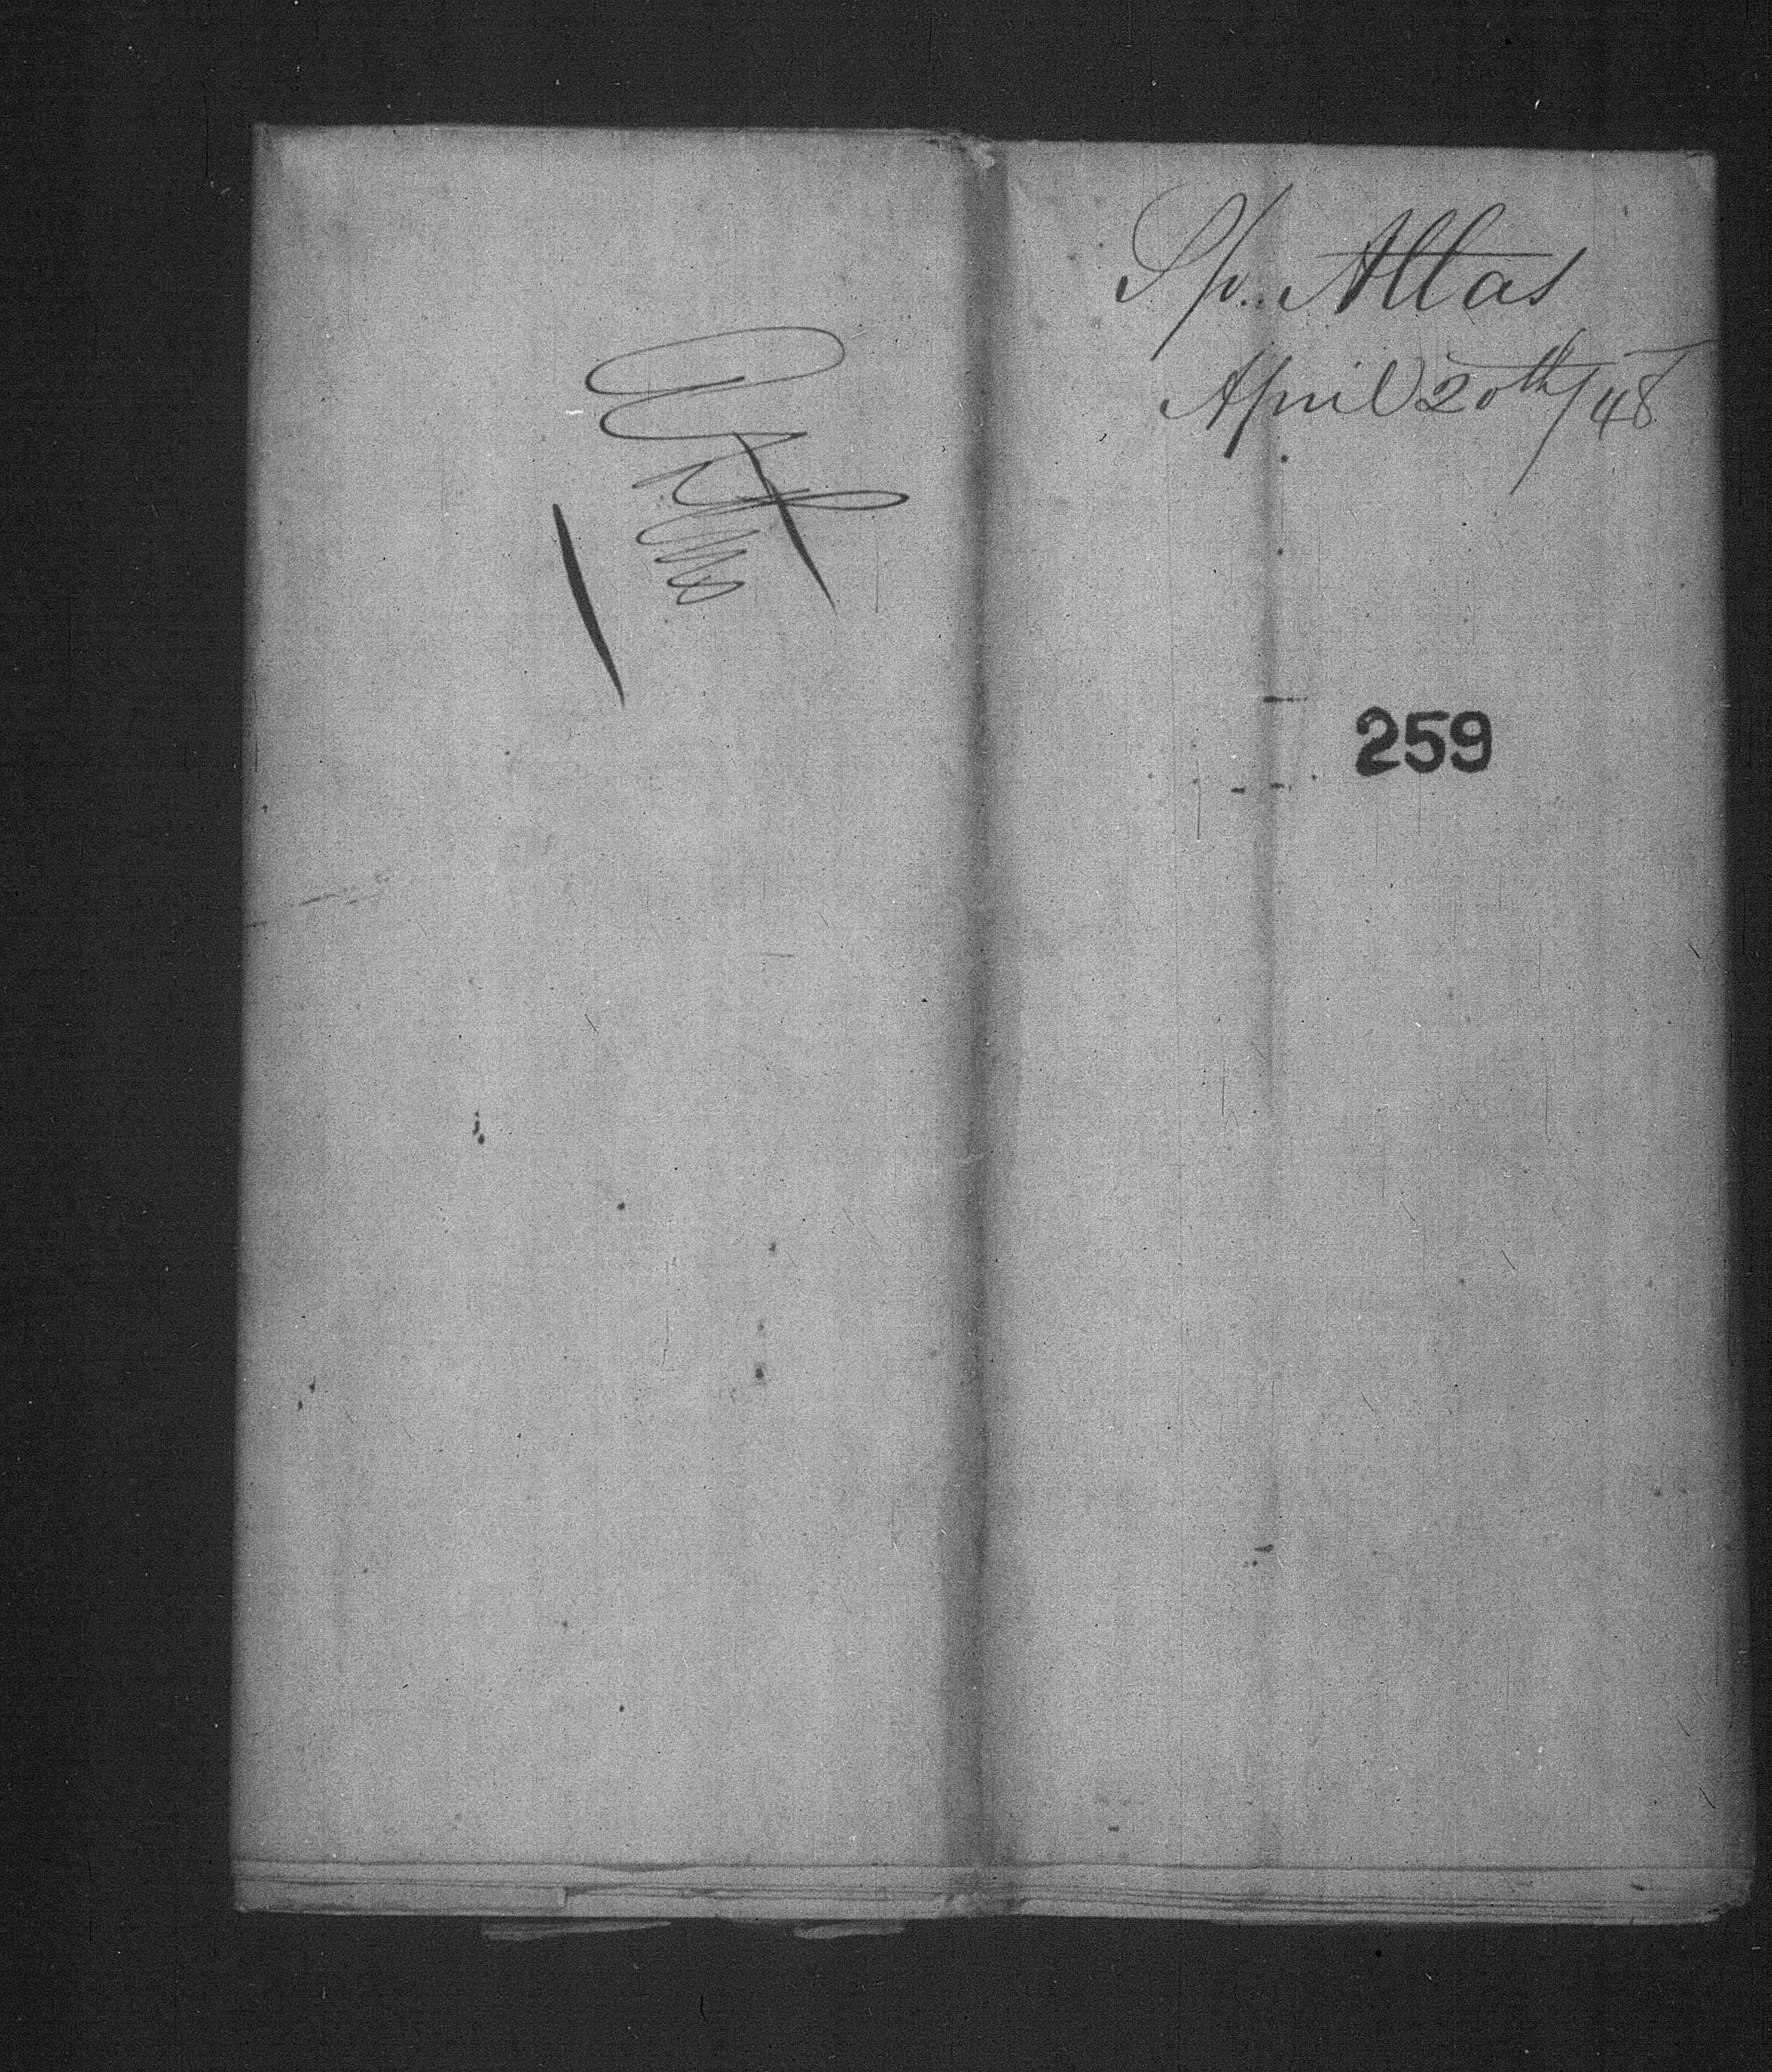 S/p. Atlas
April 20th/48
259